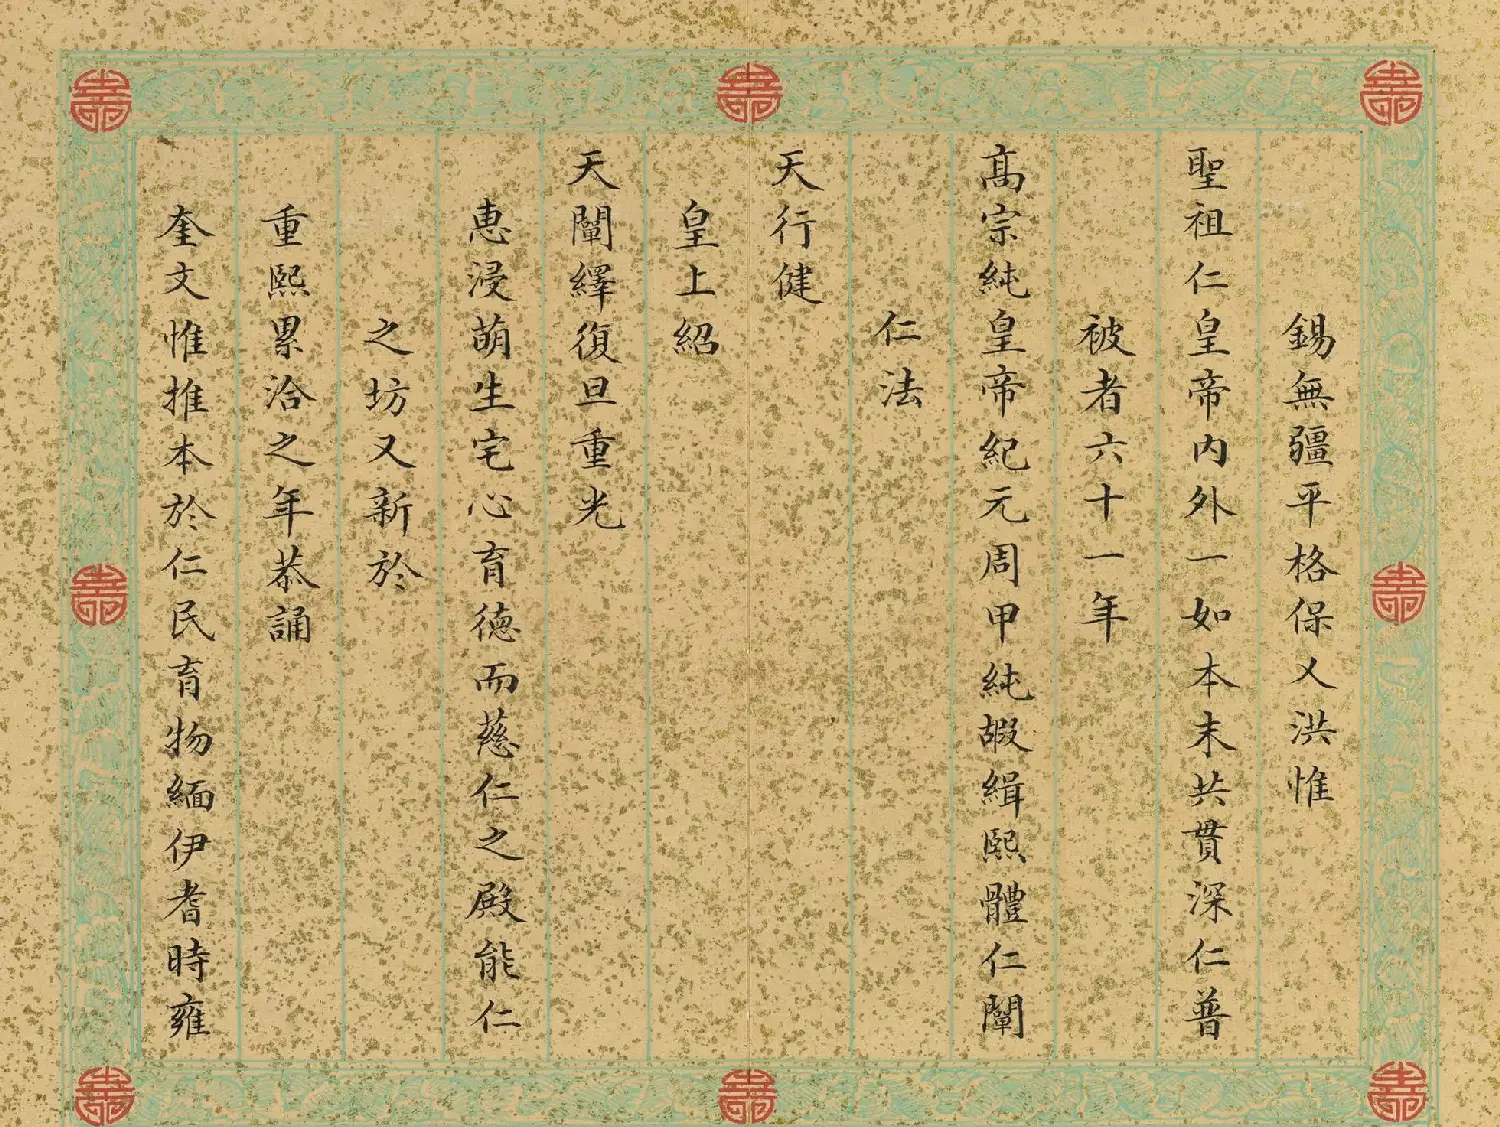 錫無疆平格保乂洪惟
聖祖仁皇帝內外一如本末共貫深仁普
被者六十一年
高宗純皇帝紀元周甲純嘏緝熙體仁闡
仁法
天行健
皇上紹
天闡繹復旦重光
惠浸萌生宅心育德而慈仁之殿能仁
之坊又新於
重熙累洽之年恭誦
奎文惟推本於仁民育物緬伊耆時雍